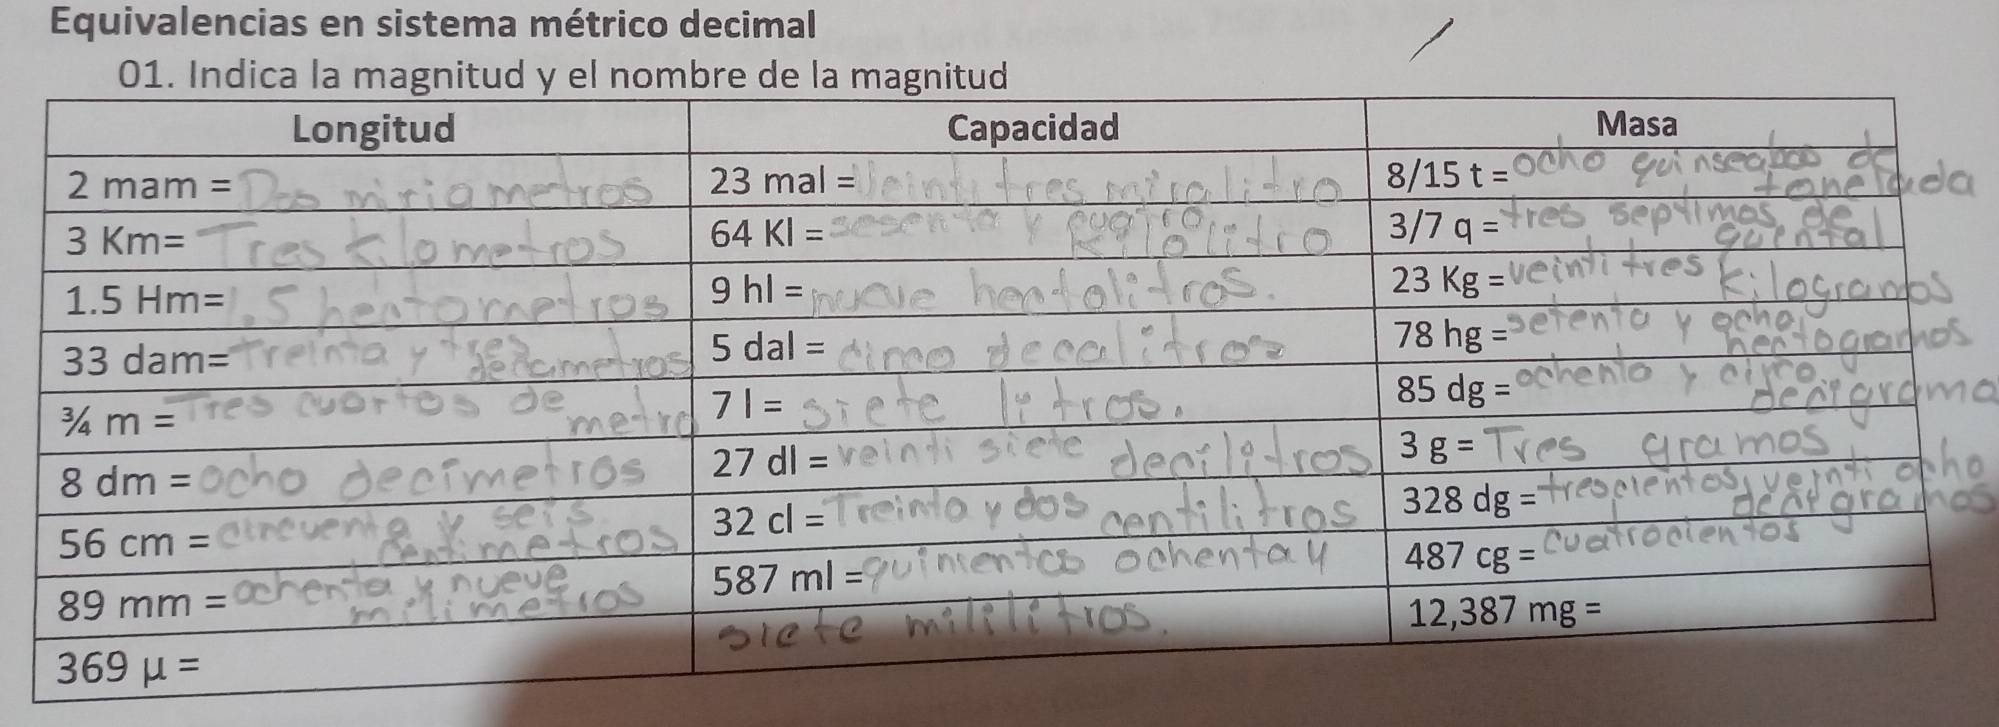 Equivalencias en sistema métrico decimal
01. Indica la magnitud y el nombre de la magnitud
Longitud Capacidad Masa
2 mam = Dos miriametros
23 mal = Veinti tres miralitro
8/15 t = ocho quinseabos de
tonelada
3 Km= Tres kilometros
64 Kl = sesenta y cuatro
kilolitro
3/7 q = tres septimos de
quintal
1.5 Hm= 1.5 hentometros
9 hl = nueve hentolitros.
23 Kg = veinti tres kilogramos
33 dam= Treinta y tres
decametros
5 dal = cinco decalitros
78 hg = setenta y ocho
hentogramos
¾ m = Tres cuartos de
metro
7 l = siete litros.
85 dg = ochenta y cinco
decigramo
8 dm = ocho decimetros
27 dl = veinti siete decilitros
3 g = Tres gramos
56 cm = cincuenta y seis
centimetros
32 cl = Treinta y dos centilitros
328 dg = trescientos veinti ocho
decigramos
89 mm = ochenta y nueve
milimetros
587 ml = quinientos ochenta y
siete mililitros.
487 cg = cuatrocientos
369 µ =
12,387 mg =